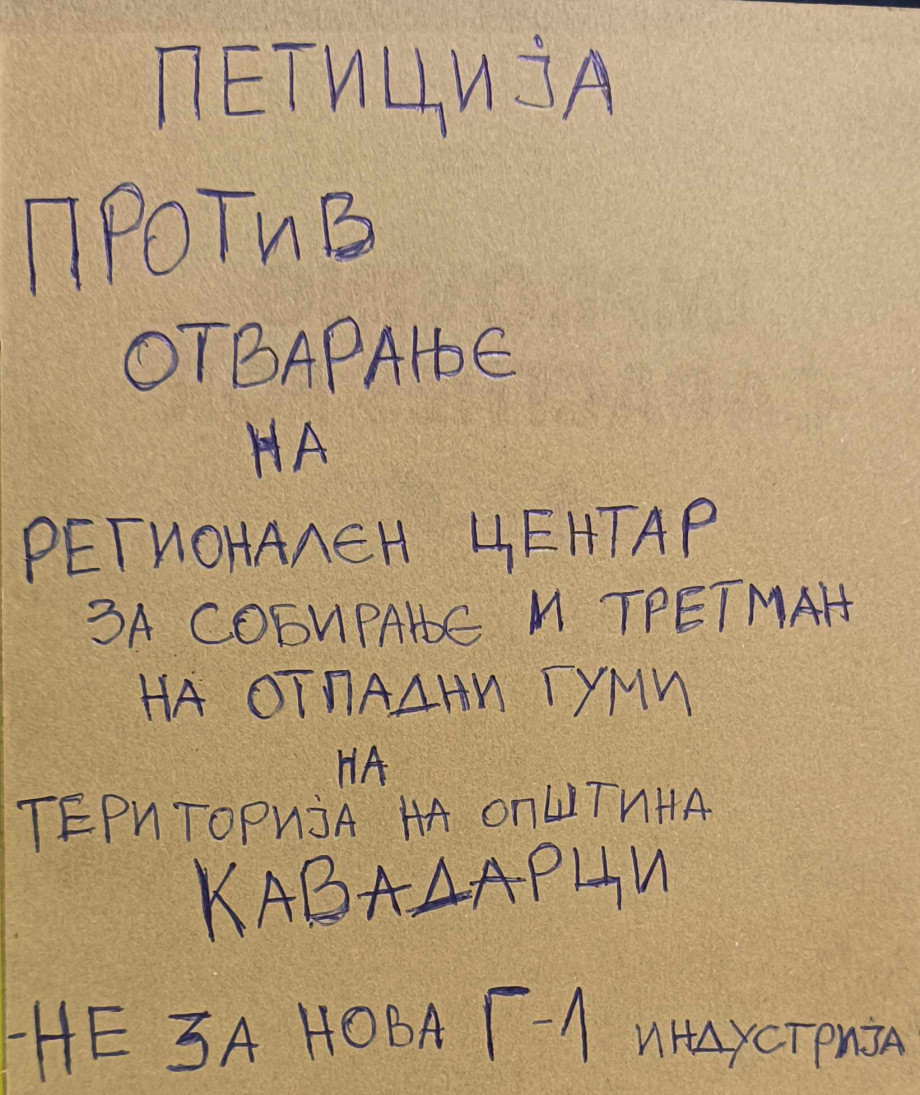 ПЕТИЦИЈА
ПРОТИВ
ОТВАРАЊЕ
НА
РЕГИОНАЛЕН ЦЕНТАР
ЗА СОБИРАЊЕ И ТРЕТМАН
НА ОТПАДНИ ГУМИ
НА
ТЕРИТОРИЈА НА ОПШТИНА
КАВАДАРЦИ
-НЕ ЗА НОВА Г-1 ИНДУСТРИЈА